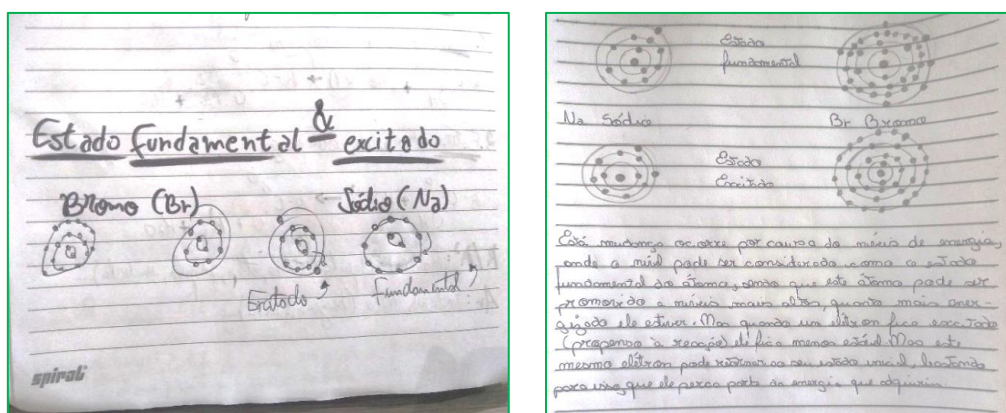 Estado fundamental & excitado
Bromo (Br)
Sódio (Na)
Exitado
Fundamental
spiral
Estado
fundamental
Na Sódio
Br Bromo
Estado
Excitado
Está mudança ocorre por causa do níveis de energia,
onde o nível pode ser considerado como o estado
fundamental do átomo, sendo que este átomo pode ser
promovido a níveis mais altos, quanto mais ener-
gizado ele estiver. Mas quando um elétron fica
(propenso à reação) ele fica menos estável. Mas este
mesmo elétron pode retornar ao seu estado inicial, bastando
para isso, que ele perca parte da energia que adquiriu